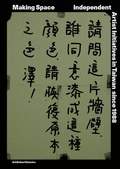 Making Space
Independent
Artist Initiatives in Taiwan since 1988
請問這片牆壁,
誰同意漆成這種
顏色,請恢復原本
之色澤!
Exhibition Histories